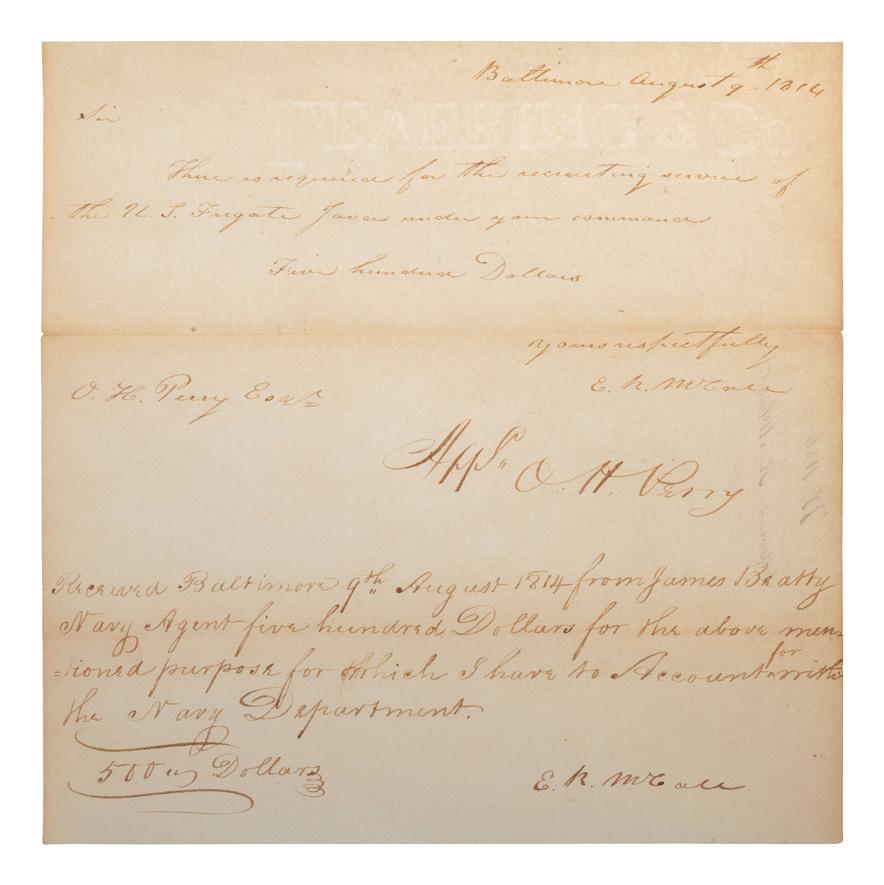 Baltimore August 9th 1814
Sir
There is required for the recruiting service of
the U. S. Frigate Java under your command
Five hundred Dollars
yours respectfully
O. H. Perry Esqr
E. R. McCall
Appd O. H. Perry
Received Baltimore 9th August 1814 from James Beatty
Navy Agent five hundred Dollars for the above men-
=tioned purpose for which I have to Account for with
the Navy Department.
500 Dollars
E. R. McCall